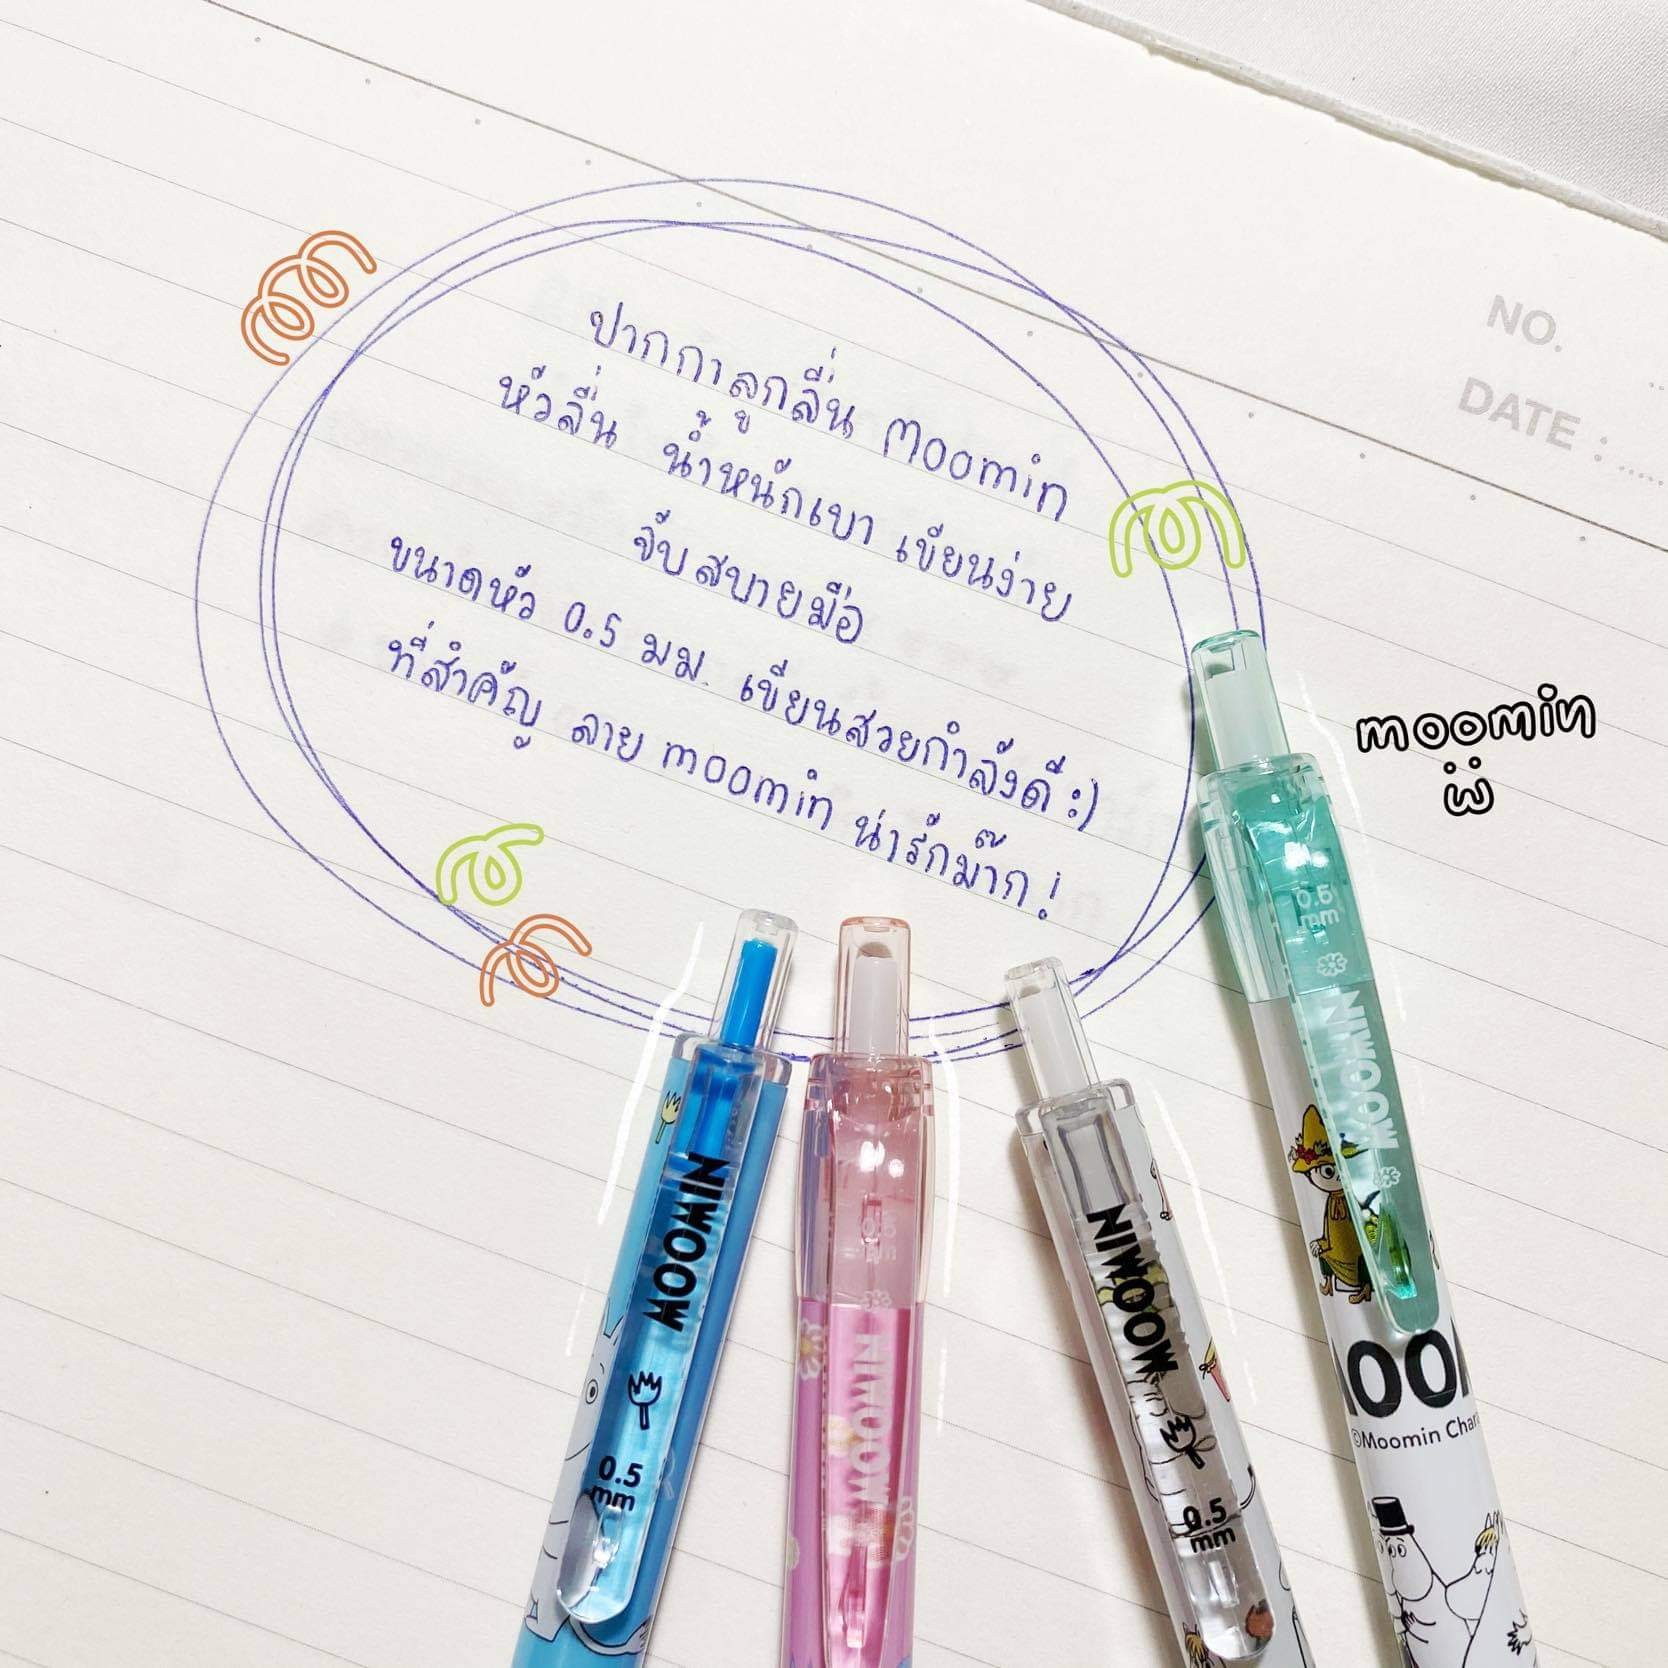 NO.
DATE :
ปากกาลูกลื่น moomin
หัวลื่น น้ำหนักเบา เขียนง่าย
จับสบายมือ
ขนาดหัว 0.5 มม. เขียนสวยกำลังดี :)
ที่สำคัญ ลาย moomin น่ารักม๊าก !
moomin
MOOMIN
0.5
mm
MOOMIN
MOOMIN
0.5
mm
0.5
mm
MOOMIN
©Moomin